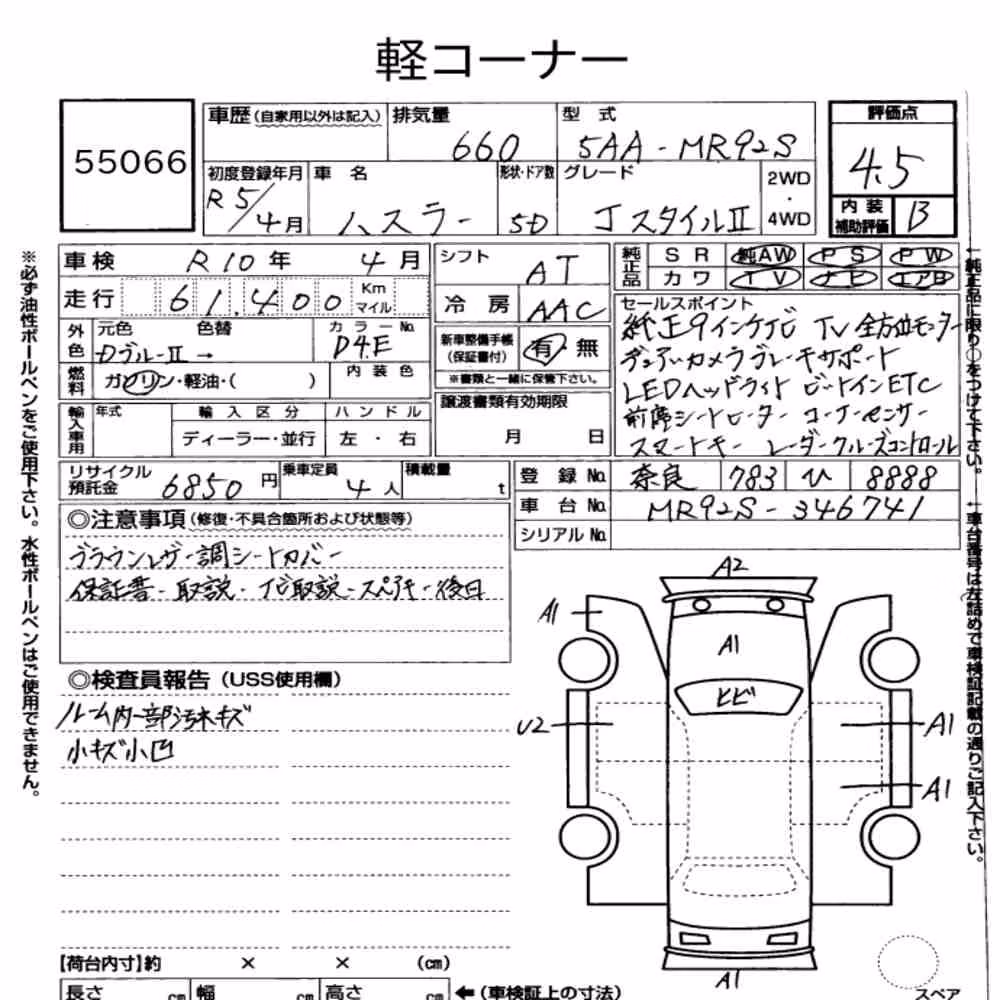 軽コーナー
55066
車歴(自家用以外は記入)
排気量
660
型式
5AA-MR92S
評価点
4.5
内装補助評価
B
初度登録年月
R5/4月
車名
ハスラー
形状・ドア数
5D
グレード
JスタイルⅡ
2WD
・
4WD
車検 R10年 4月
走行 61,400 Km マイル
シフト
AT
冷房
AAC
純正品
SR 純AW PS PW
カワ TV ナビ エアB
外色
元色 色替
Dブルー-Ⅱ→
カラーNo.
D4E
燃料
ガソリン・軽油・( )
内装色
新車整備手帳(保証書付)
有 無
※書類と一緒に保管下さい。
セールスポイント
純正9インチナビ TV 全方位モニター
デュアルカメラブレーキサポート
LEDヘッドライト ビートインETC
前席シートヒーター コーナーセンサー
スマートキー レーダークルーズコントロール
輸入車用
年式
輸入区分
ディーラー・並行
ハンドル
左・右
譲渡書類有効期限
月 日
リサイクル預託金 6850円
乗車定員 4人
積載量 t
登録No. 奈良 783 ひ 8888
車台No. MR92S-346741
シリアルNo.
◎注意事項(修復・不具合箇所および状態等)
ブラウンレザー調シートカバー
保証書-取説-ナビ取説-スペアキー-後日
◎検査員報告(USS使用欄)
ルーム内一部汚れキズ
小キズ小凹
A2
A1
A1
ヒビ
U2
A1
A1
A1
【荷台内寸】約 × × (cm)
長さ cm 幅 cm 高さ cm ←(車検証上の寸法)
スペア
※必ず油性ボールペンをご使用下さい。水性ボールペンはご使用できません。
←純正品に限り○をつけて下さい。
←車台番号は左詰めで車検証記載の通りご記入下さい。